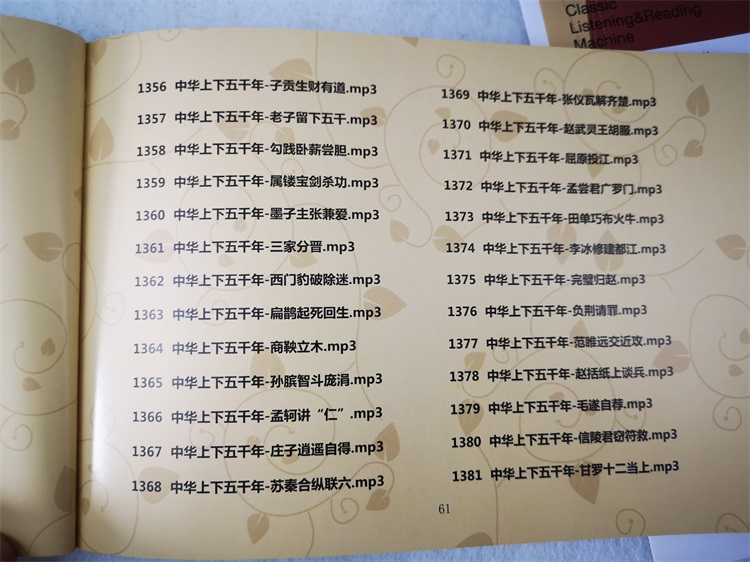 Classic
Listening&Reading
Machine
1356 中华上下五千年-子贡生财有道.mp3
1357 中华上下五千年-老子留下五千.mp3
1358 中华上下五千年-勾践卧薪尝胆.mp3
1359 中华上下五千年-属镂宝剑杀功.mp3
1360 中华上下五千年-墨子主张兼爱.mp3
1361 中华上下五千年-三家分晋.mp3
1362 中华上下五千年-西门豹破除迷.mp3
1363 中华上下五千年-扁鹊起死回生.mp3
1364 中华上下五千年-商鞅立木.mp3
1365 中华上下五千年-孙膑智斗庞涓.mp3
1366 中华上下五千年-孟轲讲“仁”.mp3
1367 中华上下五千年-庄子逍遥自得.mp3
1368 中华上下五千年-苏秦合纵联六.mp3
1369 中华上下五千年-张仪瓦解齐楚.mp3
1370 中华上下五千年-赵武灵王胡服.mp3
1371 中华上下五千年-屈原投江.mp3
1372 中华上下五千年-孟尝君广罗门.mp3
1373 中华上下五千年-田单巧布火牛.mp3
1374 中华上下五千年-李冰修建都江.mp3
1375 中华上下五千年-完璧归赵.mp3
1376 中华上下五千年-负荆请罪.mp3
1377 中华上下五千年-范睢远交近攻.mp3
1378 中华上下五千年-赵括纸上谈兵.mp3
1379 中华上下五千年-毛遂自荐.mp3
1380 中华上下五千年-信陵君窃符救.mp3
1381 中华上下五千年-甘罗十二当上.mp3
61